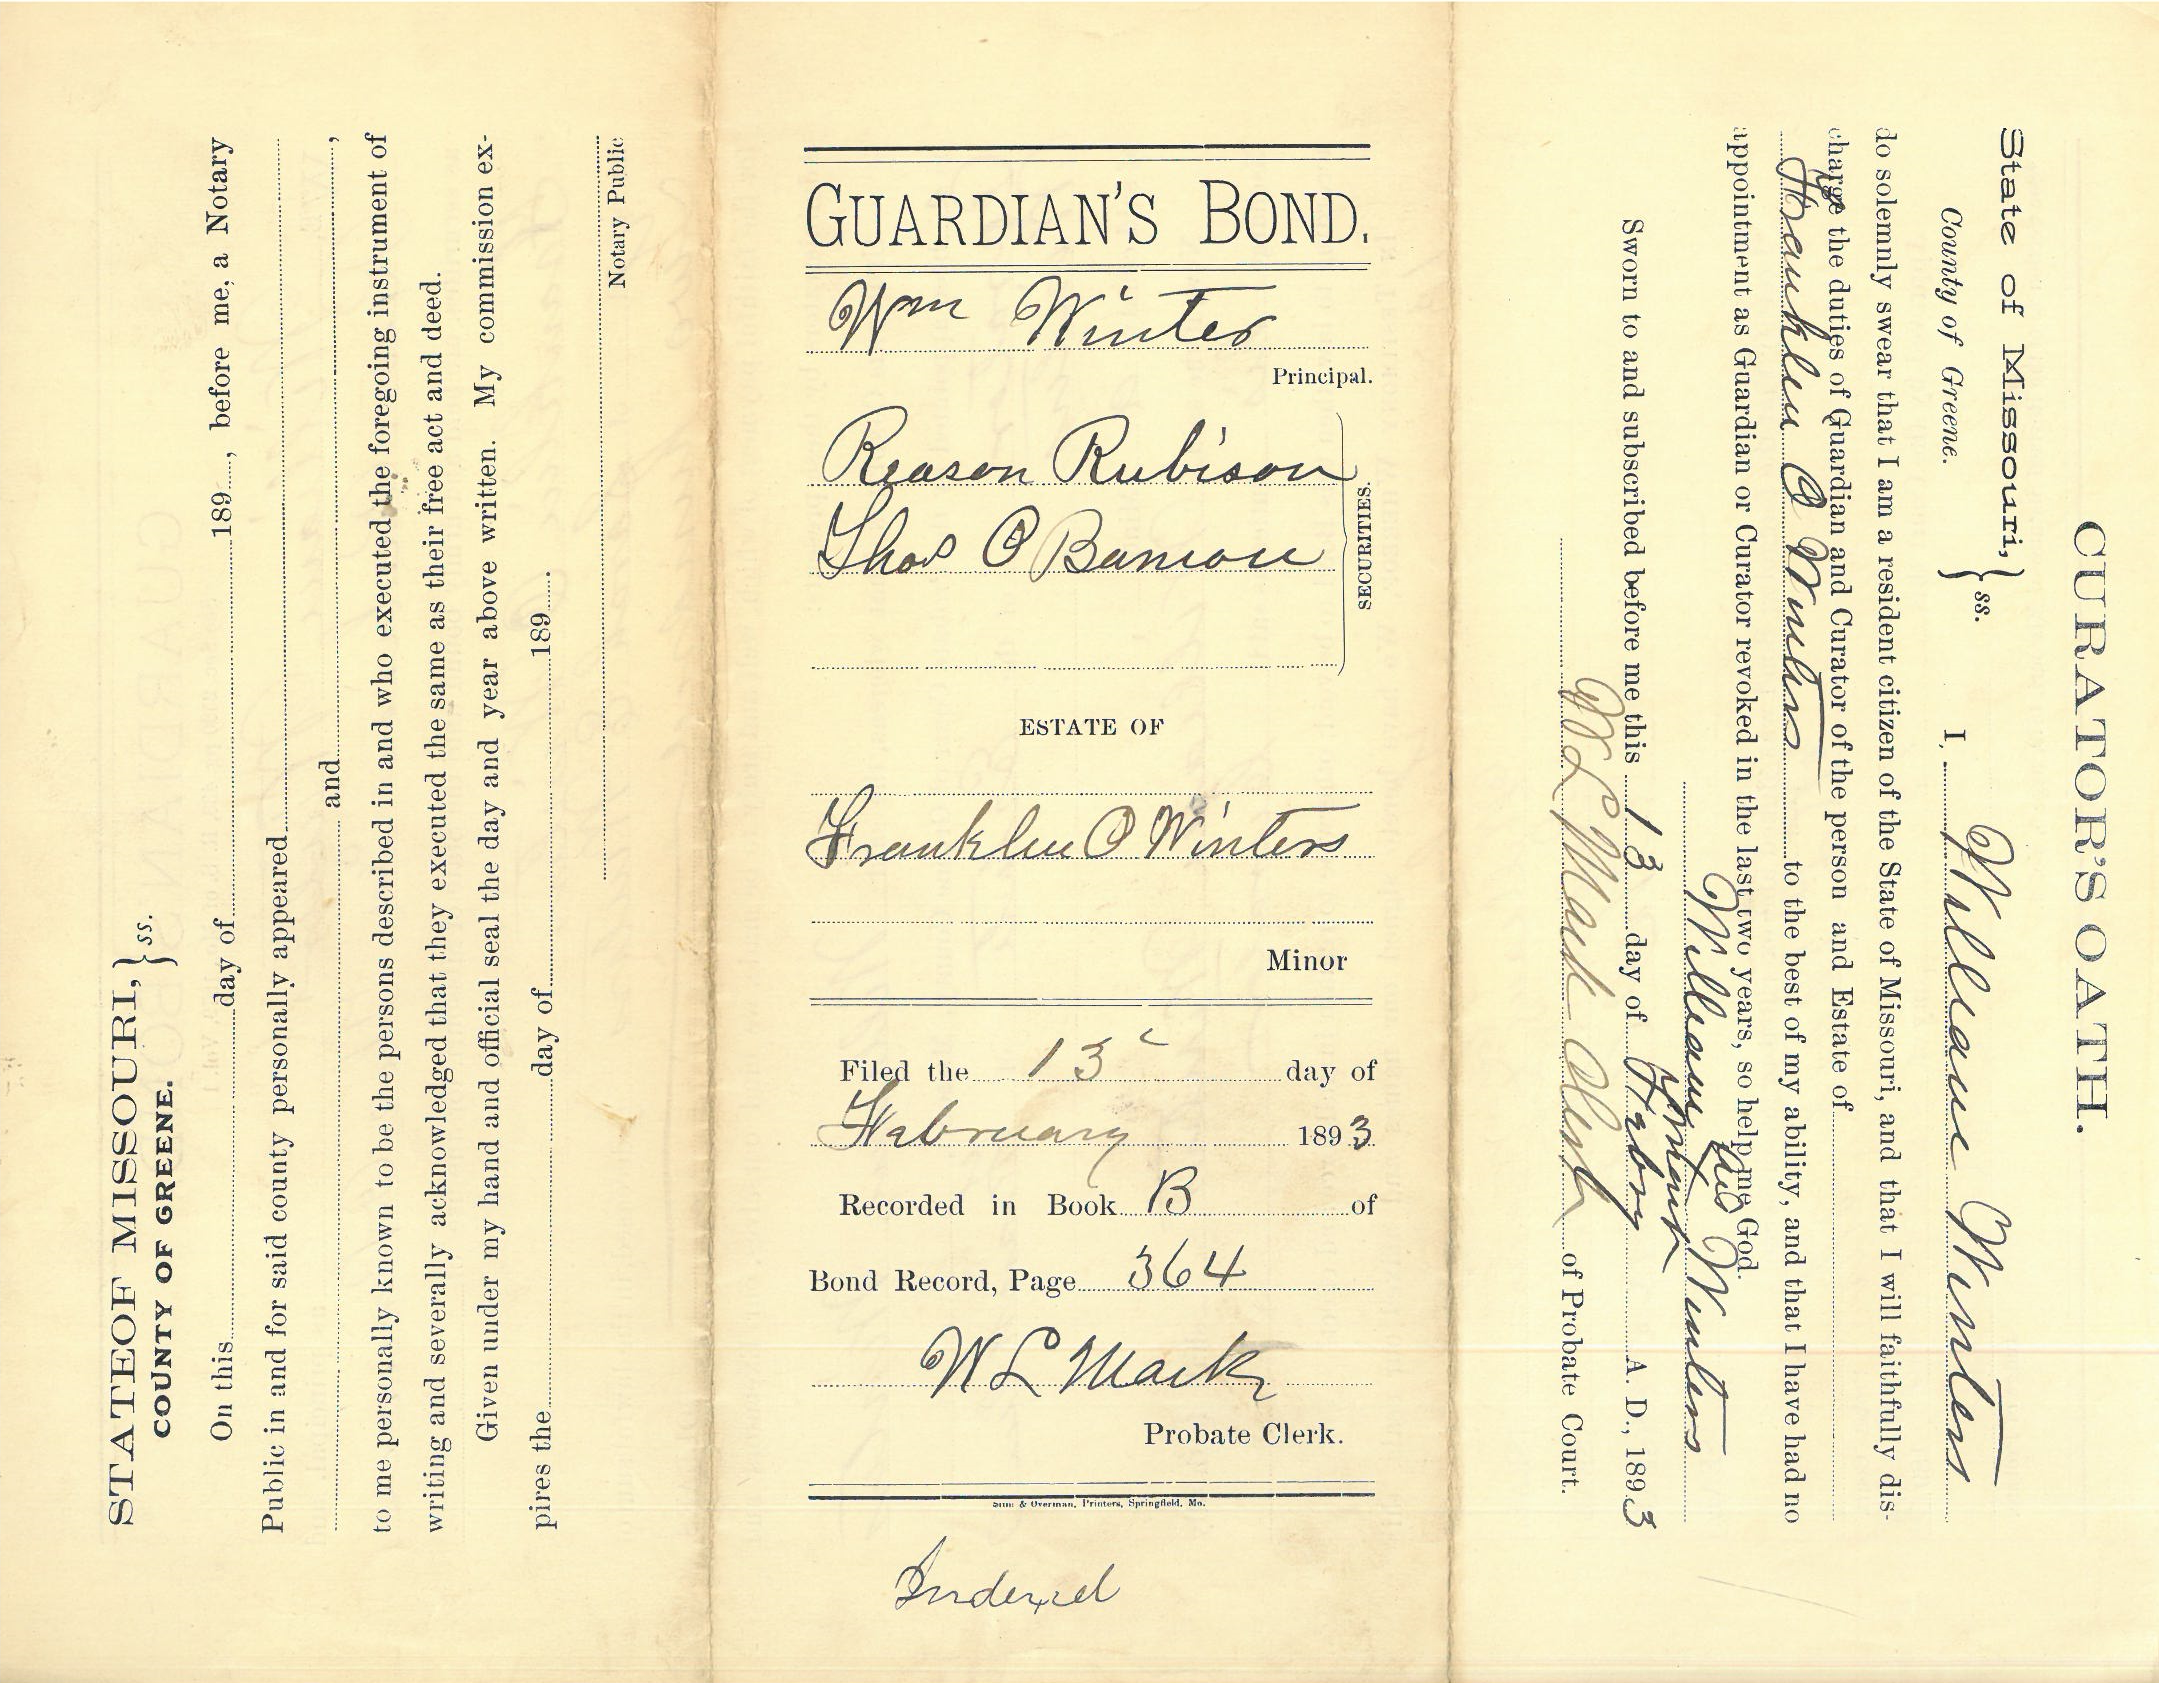 STATE OF MISSOURI, } ss.
COUNTY OF GREENE.
On this day of 189 , before me, a Notary
Public in and for said county personally appeared
and ,
to me personally known to be the persons described in and who executed the foregoing instrument of
writing and severally acknowledged that they executed the same as their free act and deed.
Given under my hand and official seal the day and year above written. My commission ex-
pires the day of 189 .
Notary Public
GUARDIAN'S BOND.
Wm Winter
Principal.
Reason Rubison
Thos O Bannon
SECURITIES.
ESTATE OF
Franklin O Winters
Minor
Filed the 13 day of
February 1893
Recorded in Book B of
Bond Record, Page 364
W L Mack
Probate Clerk.
& Overman, Printers, Springfield, Mo.
Indexed
CURATOR'S OATH.
State of Missouri, } ss.
County of Greene.
I, William Winters
do solemnly swear that I am a resident citizen of the State of Missouri, and that I will faithfully dis-
charge the duties of Guardian and Curator of the person and Estate of
Franklin O Winters to the best of my ability, and that I have had no
appointment as Guardian or Curator revoked in the last two years, so help me God.
William his Winters
X mark
Sworn to and subscribed before me this 13 day of Febry A. D., 1893
W L Mack Clerk of Probate Court.